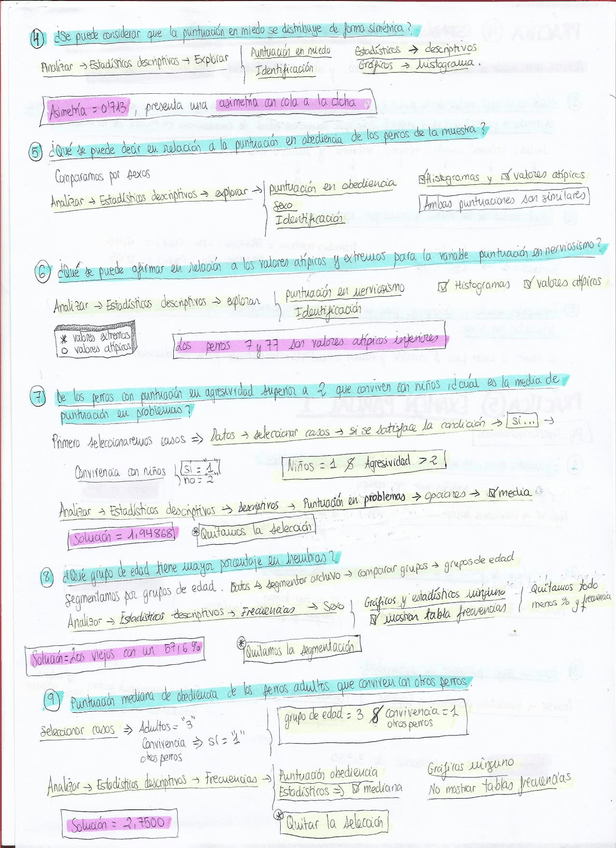 ④ ¿Se puede considerar que la puntuación en miedo se distribuye de forma simétrica?
Analizar → Estadísticos descriptivos → Explorar { Puntuación en miedo Estadísticos → descriptivos
Identificación Gráficos → histograma.
Asimetría = 0'713, presenta una asimetría con cola a la dcha
⑤ ¿Qué se puede decir en relación a la puntuación en obediencia de los perros de la muestra?
Comparamos por sexos
Analizar → Estadísticos descriptivos → explorar → { puntuación en obediencia ☑ Histogramas y ☑ valores atípicos
Sexo Ambas puntuaciones son similares
Identificación
⑥ ¿Qué se puede afirmar en relación a los valores atípicos y extremos para la variable puntuación en nerviosismo?
Analizar → Estadísticos descriptivos → explorar { puntuación en nerviosismo ☑ Histogramas ☑ valores atípicos
Identificación
* valores extremos
o valores atípicos
Los perros 7 y 77 son valores atípicos inferiores
⑦ De los perros con puntuación en agresividad superior a 2 que conviven con niños ¿cuál es la media de
puntuación en problemas?
Primero seleccionaremos casos ⇒ Datos → seleccionar casos → si se satisface la condición → si... →
Convivencia con niños { si = "1" Niños = 1 & Agresividad > 2
no = "2"
Analizar → Estadísticos descriptivos → descriptivos → Puntuación en problemas → opciones → ☑ media
Solución = 1,94868 * Quitamos la selección
⑧ ¿Qué grupo de edad tiene mayor porcentaje en hembras?
Segmentamos por grupos de edad. Datos → segmentar archivo → comparar grupos → grupos de edad
Analizar → Estadísticos descriptivos → Frecuencias → Sexo { Gráficos y estadísticos ninguno { Quitamos todo
☑ mostrar tabla frecuencias menos % y frecuencia
Solución = Los viejos con un 57,6% * Quitamos la segmentación
⑨ Puntuación mediana de obediencia de los perros adultos que conviven con otros perros
Seleccionar casos ⇒ Adultos = "3" { grupo de edad = 3 & convivencia = 1
Convivencia ⇒ sí = "1" otros perros
otros perros
Analizar → Estadísticos descriptivos → Frecuencias → { Puntuación obediencia Gráficas ninguno
Estadísticos ⇒ ☑ mediana No mostrar tablas frecuencias
Solución = 2,7500 * Quitar la selección